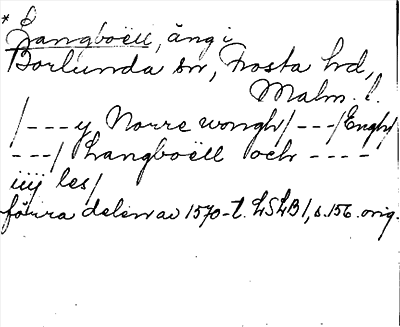 * Langboëll, äng i
Borlunda sn, Frosta hd,
Malm. l.
/---y Norre wongh/---/Engh/
---/ Langboëll och ----
iiij les/
förra delen av 1570-t. LSLB 1, s. 156. orig.